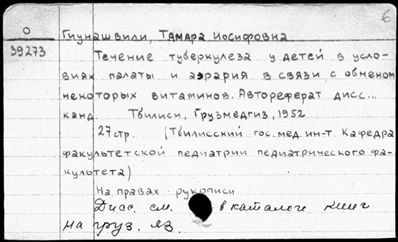 6
О
39273
Гиунашвили, Тамара Иосифовна
Течение туберкулеза у детей в усло-
виях палаты и аэрария в связи с обменом
некоторых витаминов. Автореферат дисс...
канд. Тбилиси, Грузмедгиз, 1952.
27 стр. (Тбилисский гос. мед. ин-т. Кафедра
факультетской педиатрии педиатрического фа-
культета)
На правах рукописи.
Дисс. см. в каталоге книг
на груз. яз.